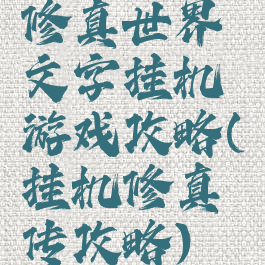 修真世界
文字挂机
游戏攻略(
挂机修真
传攻略)